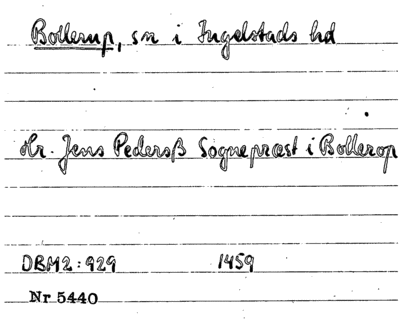 Bollerup, sn i Ingelstads hd
Hr. Jens Pedersß Sognepræst i Bollerop
DRM2: 929 1459
Nr 5440